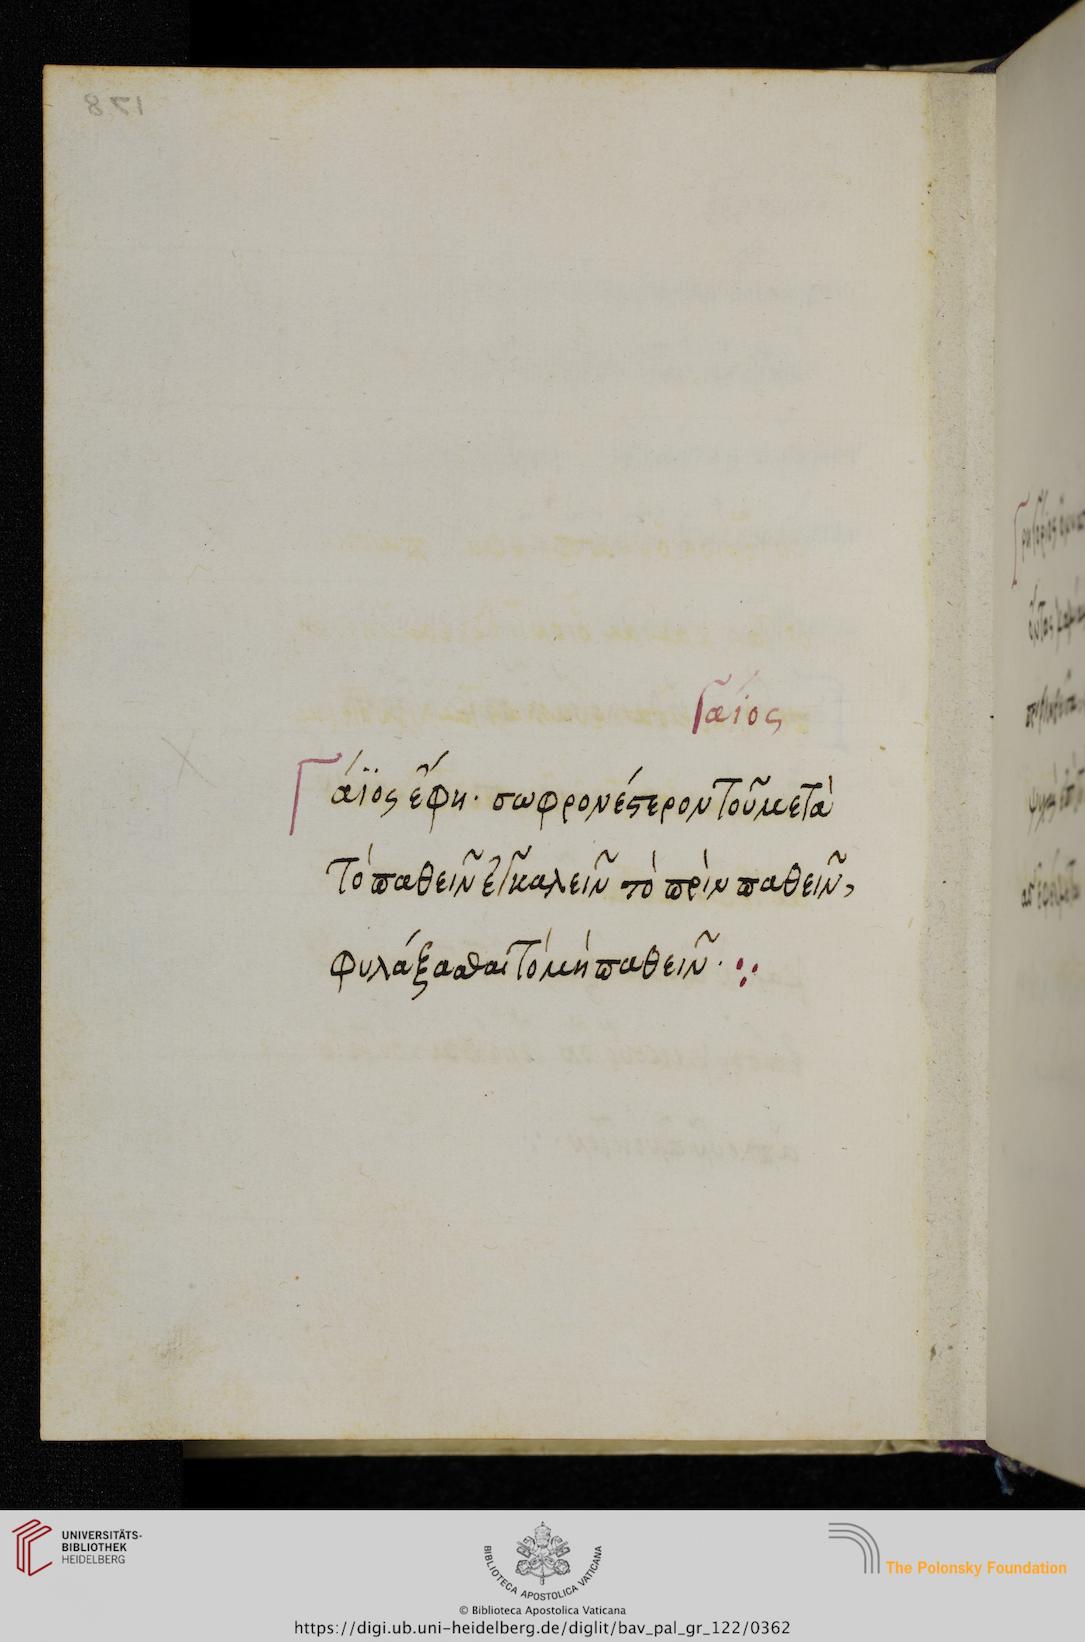 Γάϊος
Γάϊος ἔφη· σωφρονέστερον τοῦ μετὰ
τὸ παθεῖν ἐγκαλεῖν τὸ πρὶν παθεῖν,
φυλάξασθαι τὸ μὴ παθεῖν·
178
UNIVERSITÄTS-
BIBLIOTHEK
HEIDELBERG
BIBLIOTECA APOSTOLICA VATICANA
The Polonsky Foundation
© Biblioteca Apostolica Vaticana
https://digi.ub.uni-heidelberg.de/diglit/bav_pal_gr_122/0362